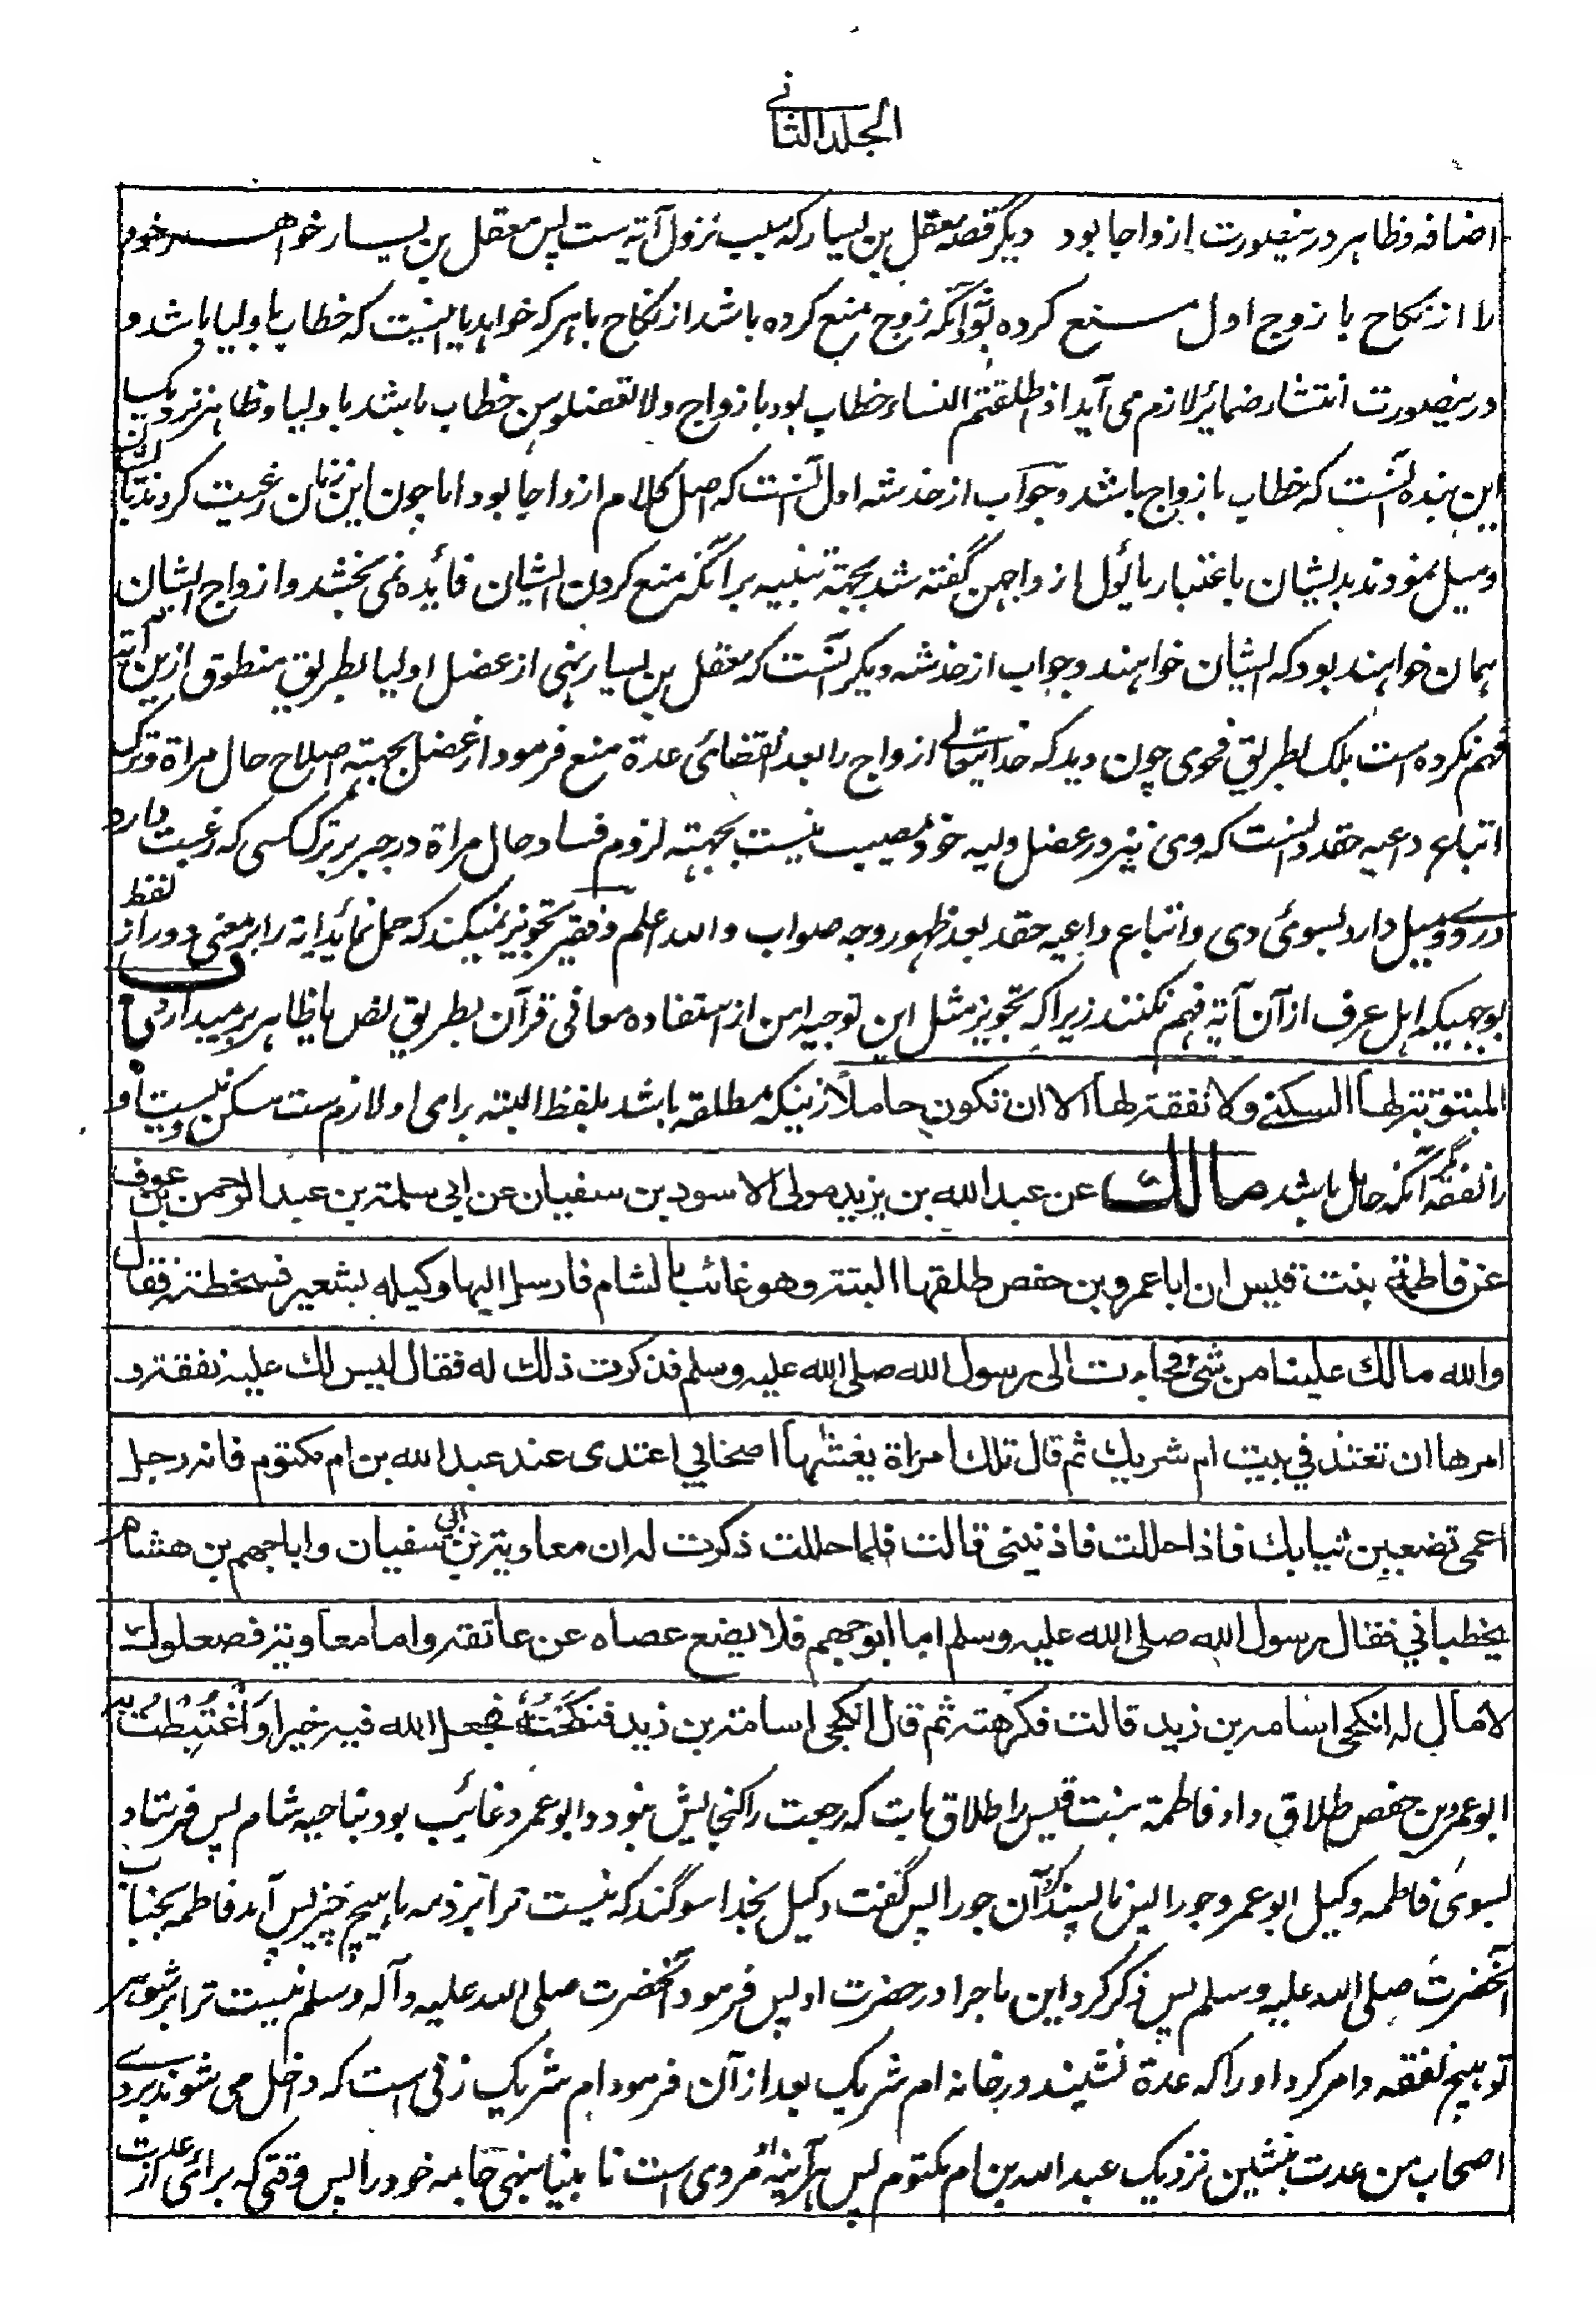 الجلد الثاني
اضافه و ظاهر درینصورت ازواجا بود دیگر قصهٔ معقل بن یسار که سبب نزول آیه ست پس معقل بن یسار خواهر خود
را از نکاح با زوج اول منع کرده بود نه آنکه زوج منع کرده باشد از نکاح باهر که خواهد یا اینست که خطاب باولیا باشد و
درینصورت انتشار ضمائر لازم می آید اذا طلقتم النساء خطاب بود بازواج و لا تعضلوهن خطاب باشد باولیا و ظاهر نزدیک
این بنده آنست که خطاب بازواج باشد و جواب از خدشه اول آنست که اصل کلام ازواجا بود اما چون این زنان رغبت کردند بآن
و میل نمودند بدیشان باعتبار ما یؤل ازواجهن گفته شد بجهته تنبیه بر آنکه منع کردن ایشان فائده نمی بخشد و ازواج ایشان
همان خواهند بود که ایشان خواهند و جواب از خدشه دیگر آنست که معقل بن یسار نهی از عضل اولیا بطریق منطوق ازین آیه
فهم نکرده است بلکه بطریق فحوی چون دید که خدایتعالی ازواج را بعد انقضائی عدة منع فرمود از عضل بجهته اصلاح حال مراة و ترک
اتباع داعیه حقد دانست که وی نیز در عضل ولیه خود مصیب نیست بجهته لزوم فساد حال مراة در جبر بر ترک کسی که رغبت دارد
در وی و میل دارد بسوئی وی و اتباع داعیه حقد بعد ظهور وجه صواب والله اعلم و فقیر تجویز نمیکند که حمل نمایند آیه را بر معنی دور از لفظ
بوجهیکه اهل عرف از آن آیه فهم نکنند زیرا که تجویز مثل این توجیه امن از استفاده معانی قرآن بطریق نص یا ظاهر بر میدارد باب
المبتوتة لها السکنے ولا نفقة لها الا ان تکون حاملا زنیکه مطلقه باشد بلفظ البته برای او لازم ست سکن و نیست او
را نفقه مگر آنکه حامل باشد مالك عن عبد الله بن يزيد مولى الاسود بن سفيان عن ابي سلمة بن عبد الرحمن بن عوف
عن فاطمة بنت قيس ان ابا عمرو بن حفص طلقها البتة وهو غائب بالشام فارسل اليها وكيله بشعير فسخطته فقال
والله مالك علينا من شئ فجاءت الى رسول الله صلى الله عليه وسلم فذكرت ذلك له فقال ليس لك عليه نفقة و
امرها ان تعتد في بيت ام شريك ثم قال تلك امراة يغشها اصحابي اعتدى عند عبد الله بن ام مكتوم فانه رجل
اعمى تضعين ثيابك فاذا حللت فاذنيني قالت فلما حللت ذكرت له ان معاوية بن ابي سفيان وابا جهم بن هشام
يخطباني فقال رسول الله صلى الله عليه وسلم اما ابو جهم فلا يضع عصاه عن عاتقه واما معاوية فصعلوك
لا مال له انكحي اسامه بن زيد قالت فكرهته ثم قال انكحي اسامة بن زيد فنكحته فجعل الله فيه خيرا واغتبطت به
ابو عمرو بن حفص طلاق داد فاطمة بنت قیس را طلاق بات که رجعت را گنجایش نبود و ابو عمرو غائب بود بناحیه شام پس فرستاد
بسوئ فاطمه وکیل ابو عمرو جو را پس ناپسند کرد آن جو را پس گفت وکیل بخدا سوگند که نیست ترا بر ذمه ما هیچ چیز پس آمد فاطمه بجناب
آنحضرت صلی الله علیه وسلم پس ذکر کرد این ماجرا در حضرت او پس فرمود آنحضرت صلی الله علیه و آله وسلم نیست ترا بر شوهر
تو هیچ نفقه و امر کرد او را که عدة نشیند در خانه ام شریک بعد از آن فرمود ام شریک زنی است که داخل می شوند بر وے
اصحاب من عدت بنشین نزدیک عبد الله بن ام مکتوم پس هرآئینه او مردی است نابینا بنهی جامه خود را پس وقتی که برائی از عدت